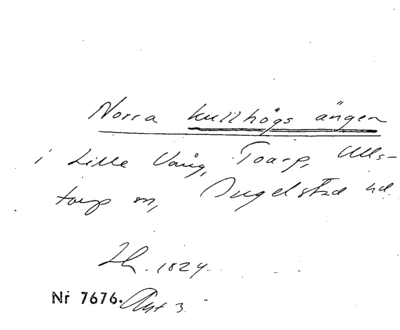 Norra kullhögs ängen
i Lille Vång, Toarp, Ulls-
torp sn, Ingelstad hd
1824.
Nr 7676. Akt 3.